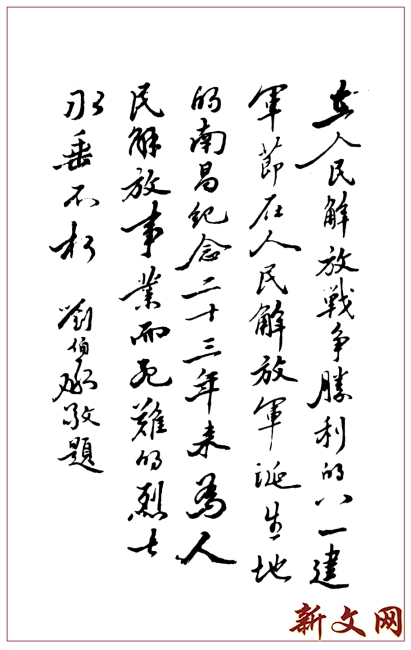 在人民解放戰争勝利的八一建
軍節在人民解放軍誕生地
的南昌紀念二十三年来為人
民解放事業而死難的烈士
永垂不朽
劉伯承敬題
新文网